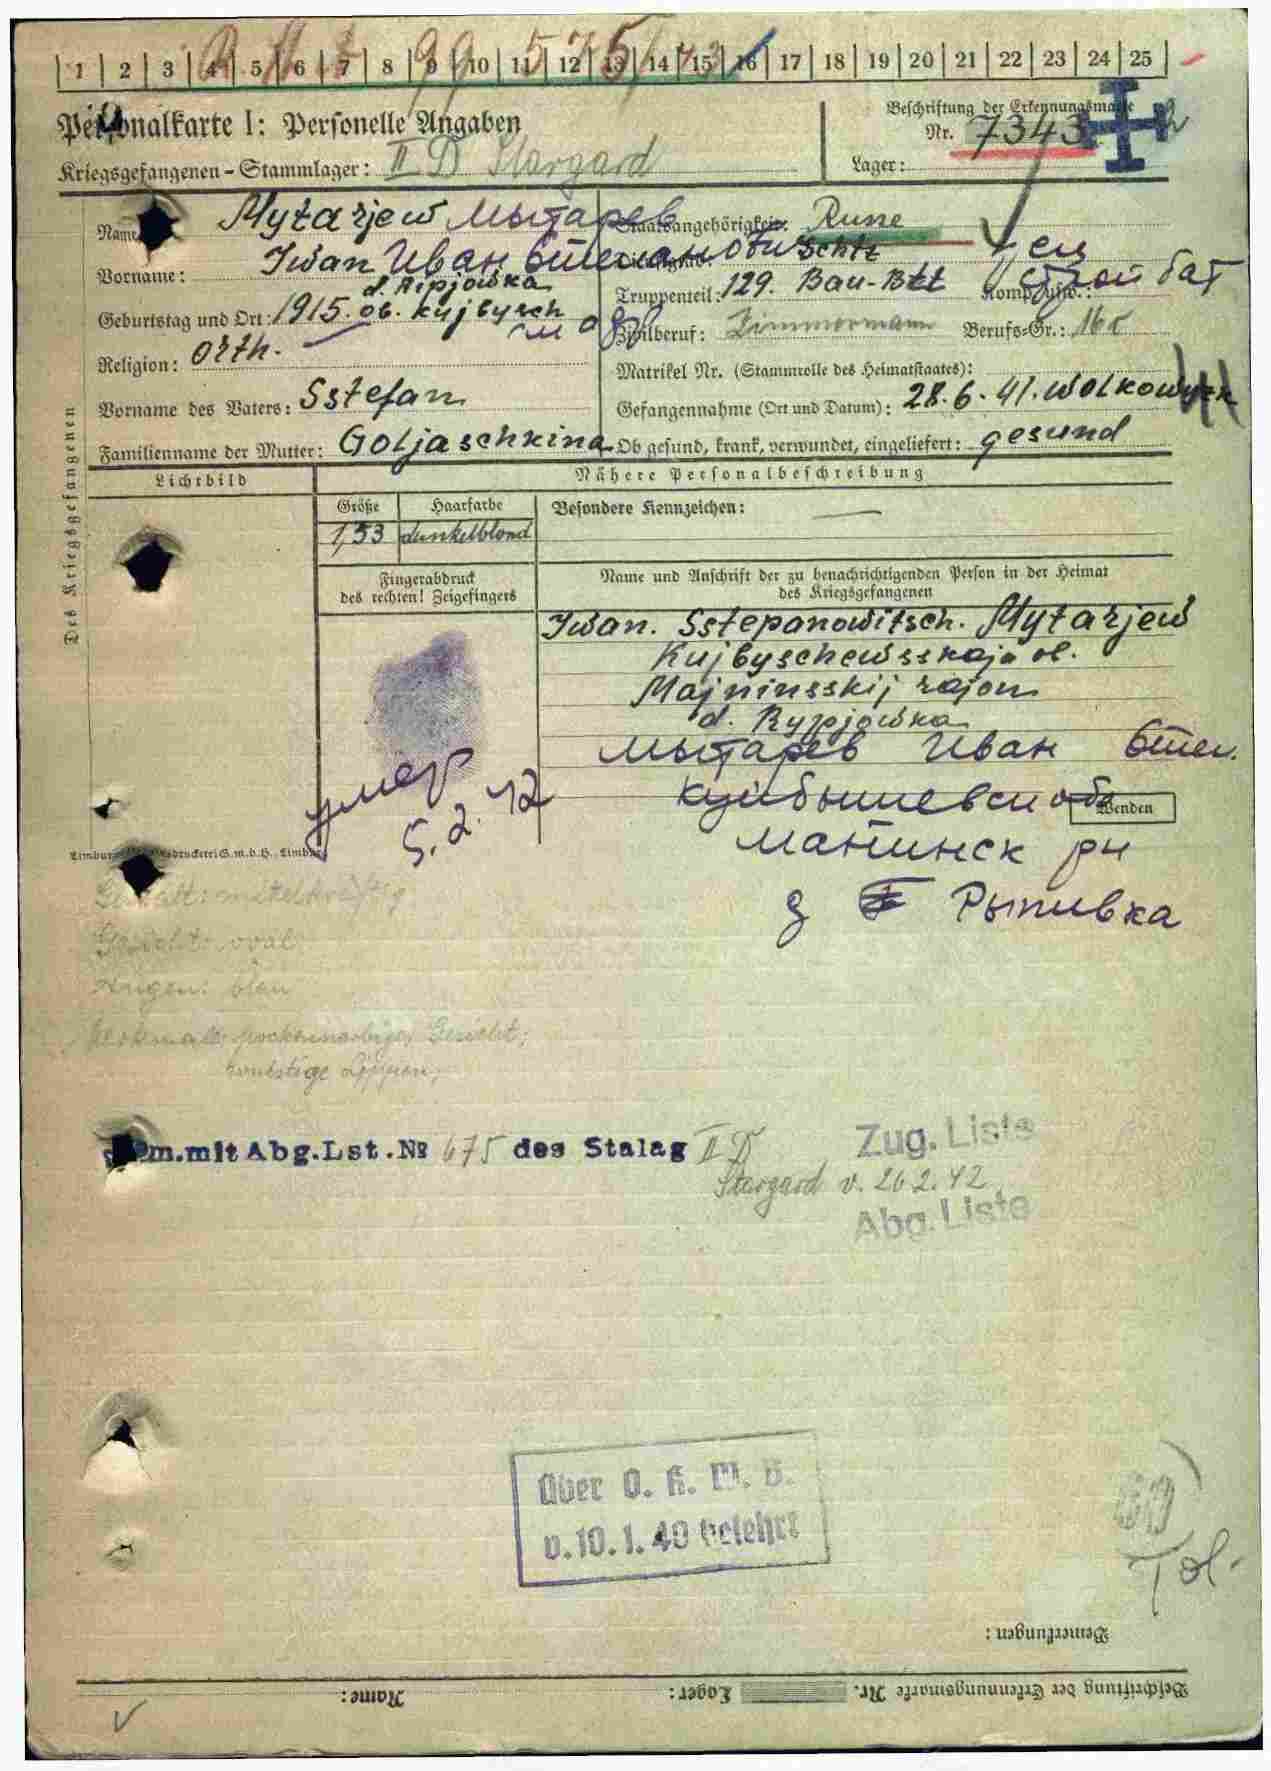 1 2 3 4 5 6 7 8 9 10 11 12 13 14 15 16 17 18 19 20 21 22 23 24 25
Personalkarte I: Personelle Angaben
Beschriftung der Erkennungsmarke
Nr. 7343
Kriegsgefangenen-Stammlager: II D Stargard
Lager:
Des Kriegsgefangenen
Name: Mytarjew Мытарев
Staatsangehörigkeit: Russe
Vorname: Iwan Иван Степанович
Schtz
d. Ripjowka
Truppenteil: 129. Bau-Btl
Komp. usw.:
строй бат
Geburtstag und Ort: 1915. ob. Kujbysch
Zivilberuf: Zimmermann Berufs-Gr.: 16c
Religion: Orth.
Matrikel Nr. (Stammrolle des Heimatstaates):
Vorname des Vaters: Sstefan
Gefangennahme (Ort und Datum): 28.6.41. Wolkowysk
Familienname der Mutter: Goljaschkina
Ob gesund, krank, verwundet, eingeliefert: gesund
Lichtbild
Nähere Personalbeschreibung
Größe Haarfarbe Besondere Kennzeichen: —
1,53 dunkelblond
Fingerabdruck
des rechten! Zeigefingers
Name und Anschrift der zu benachrichtigenden Person in der Heimat
des Kriegsgefangenen
Iwan. Sstepanowitsch. Mytarjew
Kujbyschewsskaja ob.
Majninsskij rajon
d. Rypjowka
Мытарев Иван Степ.
умер
5.2.42
Куйбышевск обл
Wenden
Маинск рн
д Рыпивка
Gestalt: mittelkräftig
Gesicht: oval
Augen: blau
Merkmale: pockennarbiges Gesicht;
wulstige Lippen;
m.mit Abg.Lst.№ 675 des Stalag II D
Stargard v. 26.2.42
Zug. Liste
Abg. Liste
Über O.K.W.B.
v.10.1.40 belehrt
Bemerkungen:
Beschriftung der Erkennungsmarke Nr. Lager: Name: